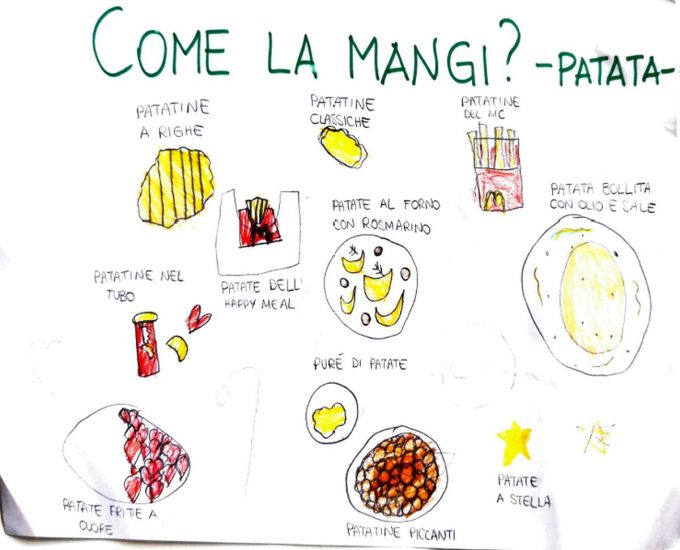 COME LA MANGI? -PATATA-
PATATINE
A RIGHE
PATATINE
CLASSICHE
PATATINE
DEL MC
PATATE AL FORNO
CON ROSMARINO
PATATA BOLLITA
CON OLIO E SALE
PATATINE NEL
TUBO
PATATE DELL'
HAPPY MEAL
PURÉ DI PATATE
PATATE FRITE A
CUORE
PATATINE PICCANTI
PATATE
A STELLA